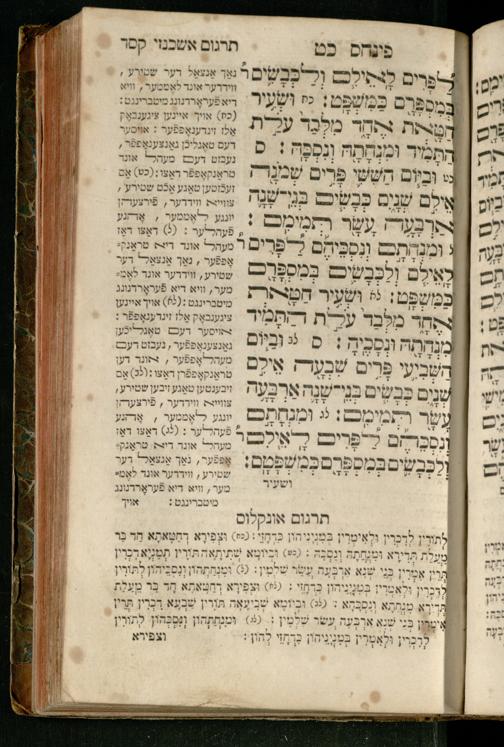 פינחס כט
תרגום אשכנזי קסד
לַפָּרִים לָאֵילִם וְלַכְּבָשִׂים
בְּמִסְפָּרָם כַּמִּשְׁפָּט: כח וּשְׂעִיר
חַטָּאת אֶחָד מִלְּבַד עֹלַת
הַתָּמִיד וּמִנְחָתָהּ וְנִסְכָּהּ: ס
כט וּבַיּוֹם הַשִּׁשִּׁי פָּרִים שְׁמֹנָה
אֵילִם שְׁנָיִם כְּבָשִׂים בְּנֵי־שָׁנָה
אַרְבָּעָה עָשָׂר תְּמִימִם:
ל וּמִנְחָתָם וְנִסְכֵּיהֶם לַפָּרִים
לָאֵילִם וְלַכְּבָשִׂים בְּמִסְפָּרָם
כַּמִּשְׁפָּט: לא וּשְׂעִיר חַטָּאת
אֶחָד מִלְּבַד עֹלַת הַתָּמִיד
מִנְחָתָהּ וּנְסָכֶיהָ: ס לב וּבַיּוֹם
הַשְּׁבִיעִי פָּרִים שִׁבְעָה אֵילִם
שְׁנָיִם כְּבָשִׂים בְּנֵי־שָׁנָה אַרְבָּעָה
עָשָׂר תְּמִימִם: לג וּמִנְחָתָם
וְנִסְכֵּהֶם לַפָּרִים לָאֵילִם
וְלַכְּבָשִׂים בְּמִסְפָּרָם כְּמִשְׁפָּטָם:
ושעיר
נאך אנצאל דער שטירע,
ווידדער אונד לאממער, וויא
דיא פֿעראָרדנונג מיטברינגט:
(כח) אויך איינען ציגענבאָק
אלז זינדענאפּפֿער: אויסער
דעם טאָגליכֿען גאנצענאפּפֿער,
נעבסט דעם מעהל אונד
טראנקאפּפֿער דאצו: (כט) אם
זעכֿסטען טאגע אכֿט שטירע,
צווייא ווידדער, פֿירצעהן
יונגע לאממער, אהנע
פֿעהלער: (ל) דאצו דאז
מעהל אונד דיא טראנק־
אפּפֿער, נאך אנצאל דער
שטירע, ווידדער אונד לאממ־
ער, וויא דיא פֿעראָרדנונג
מיטברינגט: (לא) אויך איינען
ציגענבאָק אלז זינדענאפּפֿער:
אויסער דעם טאָגליכֿען
גאנצענאפּפֿער, נעבסט דעם
מעהלאפּפֿער, אונד דען
טראנקאפּפֿרן דאצו: (לב) אם
זיבענטען טאגע זיבען שטירע,
צווייא ווידדער, פֿירצעהן
יונגע לאממער, אהנע
פֿעהלער: (לג) דאצו דאז
מעהל אונד דיא טראנק־
אפּפֿער, נאך אנצאל דער
שטירע, ווידדער אונד לאממ־
ער, וויא דיא פֿעראָרדנונג
מיטברינגט: אויך
תרגום אונקלוס
לְתוֹרִין לְדִכְרִין וּלְאִימְּרִין בְּמִנְיָנֵיהוֹן כִּדְחָזֵי: (כח) וּצְפִירָא דְחַטָּאתָא חַד בַּר
מֵעֲלַת תְּדִירָא וּמִנְחָתַהּ וְנִסְכַּהּ: (כט) וּבְיוֹמָא שְׁתִיתָאָה תּוֹרִין תְּמַנְיָא דִּכְרִין
תְּרֵין אִמְּרִין בְּנֵי שְׁנָא אַרְבְּעָה עֲשַׂר שַׁלְמִין: (ל) וּמִנְחַתְהוֹן וְנִסְכֵּיהוֹן לְתוֹרִין
לְדִכְרִין וּלְאִמְּרִין בְּמִנְיָנֵיהוֹן כִּדְחָזֵי: (לא) וּצְפִירָא דְחַטָּאתָא חַד בַּר מֵעֲלַת
תְּדִירָא מִנְחָתָא וְנִסְכָּהָא: (לב) וּבְיוֹמָא שְׁבִיעָאָה תּוֹרִין שִׁבְעָא דִּכְרִין תְּרֵין
אִימְּרִין בְּנֵי שְׁנָא אַרְבְּעָה עֲשַׂר שַׁלְמִין: (לג) וּמִנְחַתְהוֹן וְנִסְכֵּהוֹן לְתוֹרִין
לְדִכְרִין וּלְאִמְּרִין בְּמִנְיָנֵיהוֹן כִּדְחָזֵי לְהוֹן: וצפירא